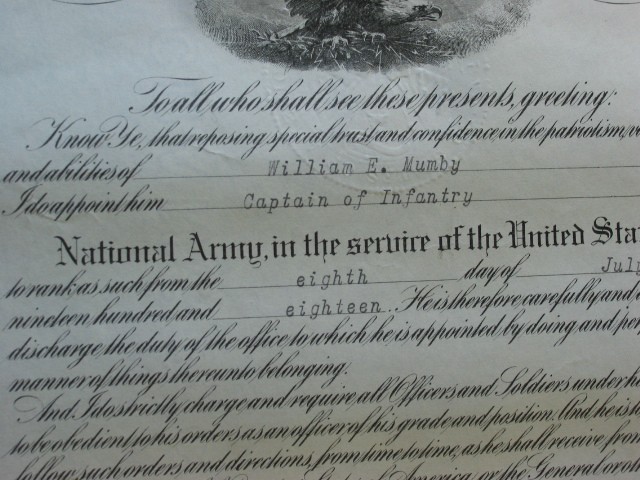 To all who shall see these presents, greeting:
Know Ye, that reposing special trust and confidence in the patriotism,
and abilities of William E. Mumby
I do appoint him Captain of Infantry
National Army, in the service of the United
to rank as such from the eighth day of July
nineteen hundred and eighteen. He is therefore carefully and
discharge the duty of the office to which he is appointed by doing and
manner of things thereunto belonging.
And I do strictly charge and require, all Officers and Soldiers under
to be obedient to his orders as an officer of his grade and position. And he is
follow such orders and directions, from time to time, as he shall receive from
America, or the General or